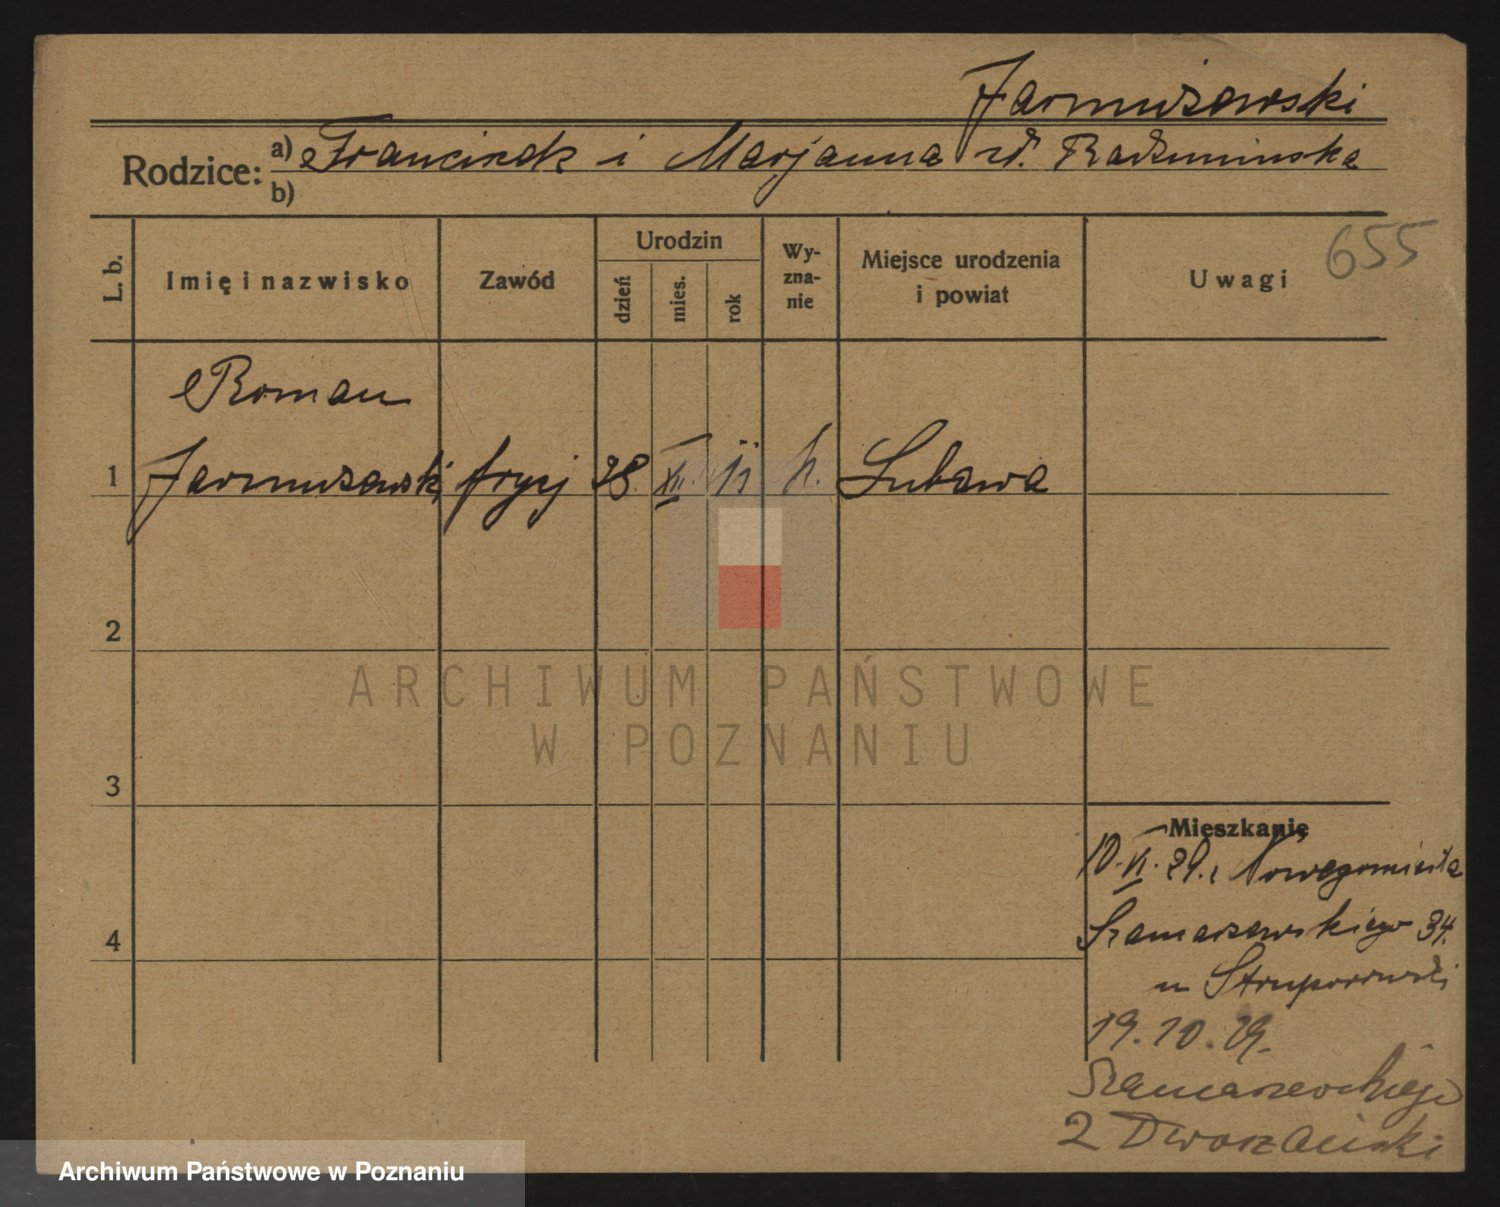 Jarmużewski
Rodzice: a) Franciszek i Marjanna zd. Radzimińska
b)
655
L. b.
Imię i nazwisko
Zawód
Urodzin
dzień
mies.
rok
Wy-
zna-
nie
Miejsce urodzenia
i powiat
Uwagi
Roman
1 Jarmużewski fryzj 28. XII. 11 k. Lubawa
2
3
4
ARCHIWUM PAŃSTWOWE
W POZNANIU
Mieszkanie
10. VI. 29. z Nowegomiasta
Szamarzewskiego 34.
u
19.10.29.
Szamarzewskiego
2 Dworzański
Archiwum Państwowe w Poznaniu